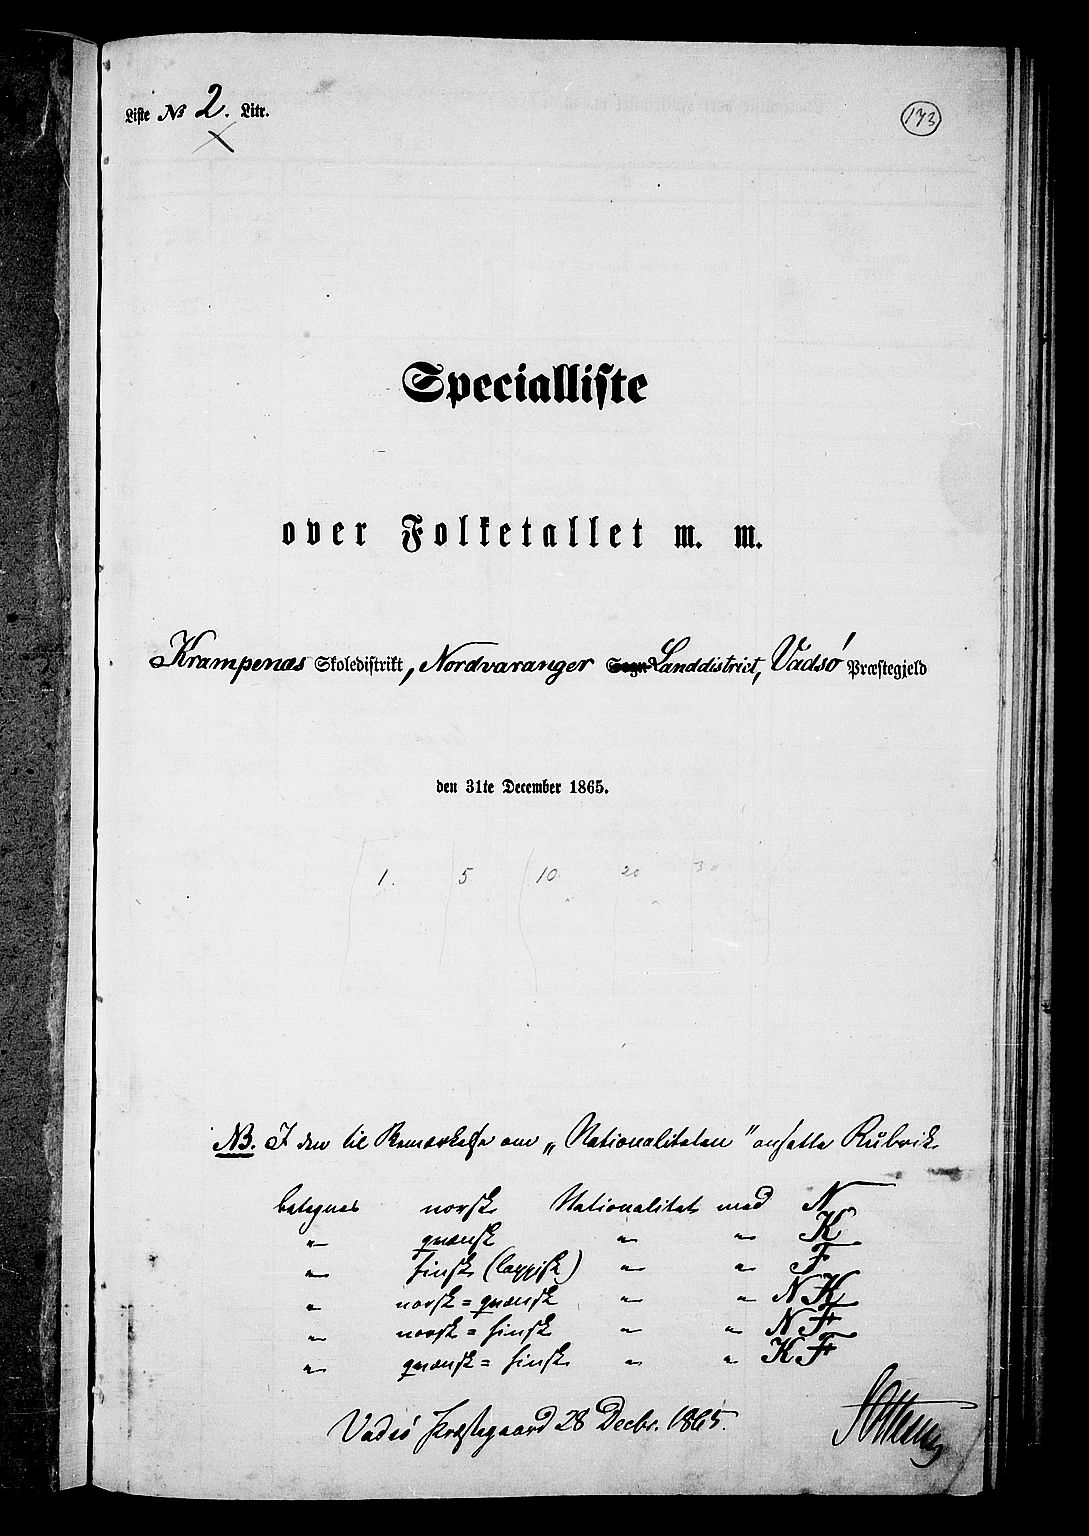 Liste № 2. Litr.
173
Specialliste
over Folketallet m. m.
Krampenæs Skoledistrikt, Nordvaranger Sogn Landdistrict, Vadsø Præstegjeld
den 31te December 1865.
1. 5 10 20 30
NB. I den til Bemærkelse om „Nationaliteten" ansatte Rubrik
betegnes norsk Nationalitet med N
" qvænsk " " K
" finsk (lappisk) " " F
" norsk=qvænsk " " NK
" norsk=finsk " " NF
" qvænsk=finsk " " KF
Vadsø Præstegaard 28 Decbr. 1865.